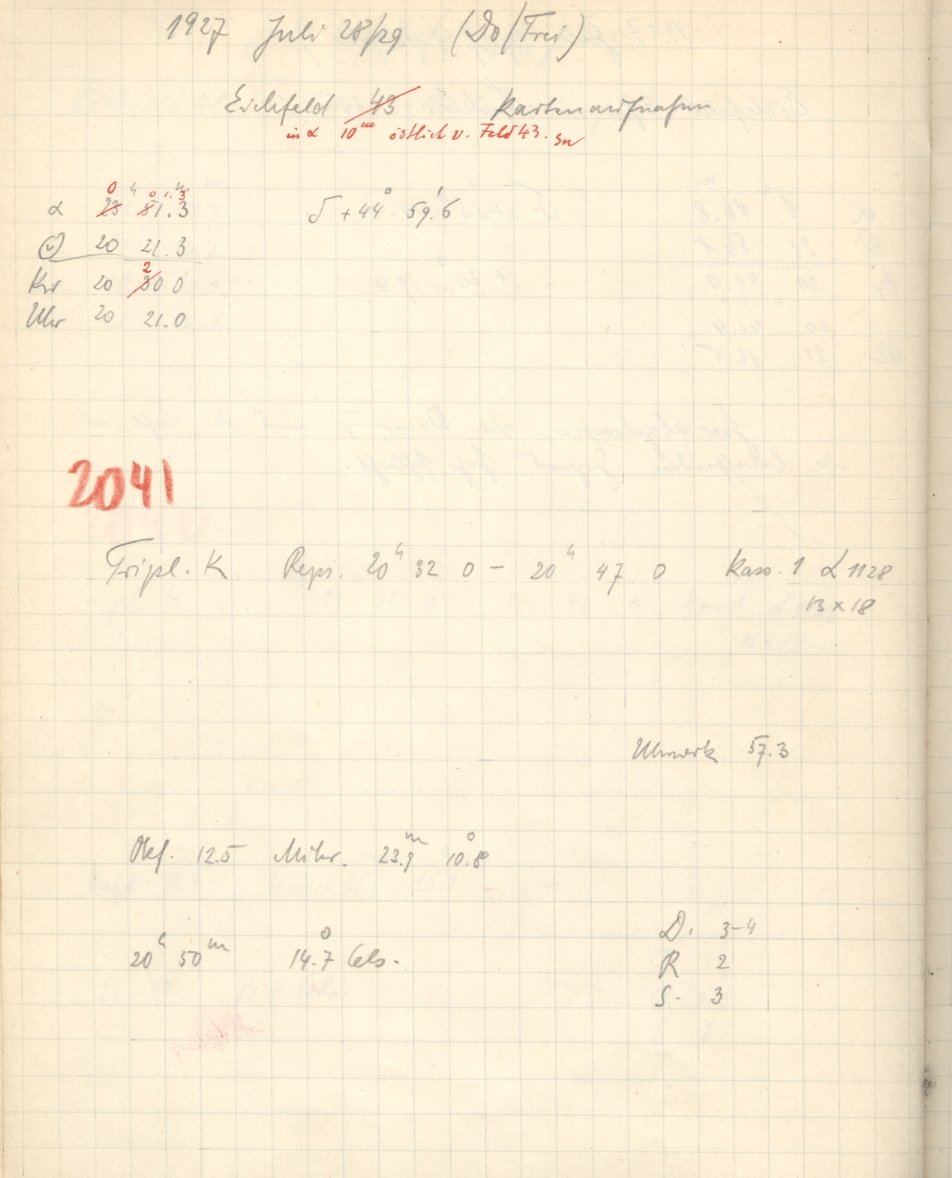 1927 Juli 28/29 (Do/Frei)
Eichfeld 43 Kartenaufnahm
in α 10ᵐ östlich v. Feld 43.
0ʰ 01.3
α 23 51.3 δ +44° 59.'6
20 21.3
2
Kr 20 30 0
Uhr 20 21.0
2041
Tripl. K Reps. 20ʰ 32 0 – 20ʰ 47 0 Kass. 1 L 1128
13 x 18
Uhrwerk 57.3
Okf. 12.5 Mikr. 23.9ᵐ 10.8°
20ʰ 50ᵐ 14.7° Cels.
D. 3-4
R 2
S. 3